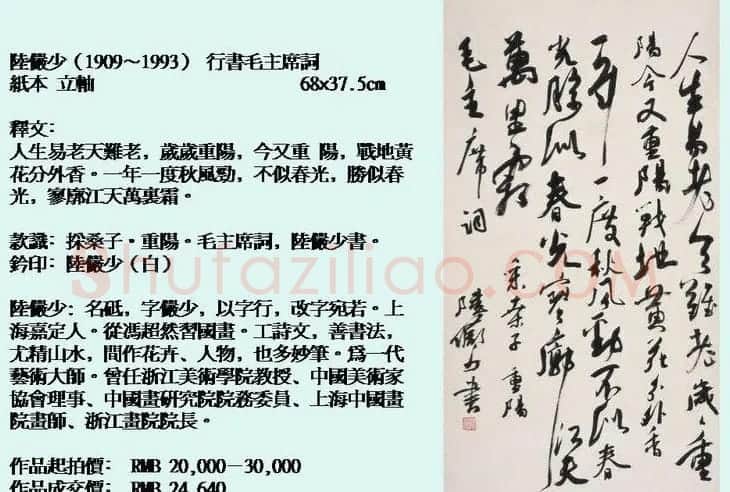 陸儼少（1909～1993） 行書毛主席詞
紙本 立軸 68x37.5cm
釋文：
人生易老天難老，歲歲重陽，今又重 陽，戰地黃
花分外香。一年一度秋風勁，不似春光，勝似春
光，寥廓江天萬裏霜。
款識：採桑子。重陽。毛主席詞，陸儼少書。
鈐印：陸儼少（白）
陸儼少：名砥，字儼少，以字行，改字宛若。上
海嘉定人。從馮超然習國畫。工詩文，善書法，
尤精山水，間作花卉、人物，也多妙筆。爲一代
藝術大師。曾任浙江美術學院教授、中國美術家
協會理事、中國畫研究院院務委員、上海中國畫
院畫師、浙江畫院院長。
作品起拍價： RMB 20,000－30,000
作品成交價： RMB 24,640
Shufaziliao.COM
人生易老天難老歲々重
陽今又重陽戰地黃花分外香
一年一度秋風勁不似春
光勝似春光寥廓江天
萬里霜
毛主席詞
采桑子 重陽
陸儼少書